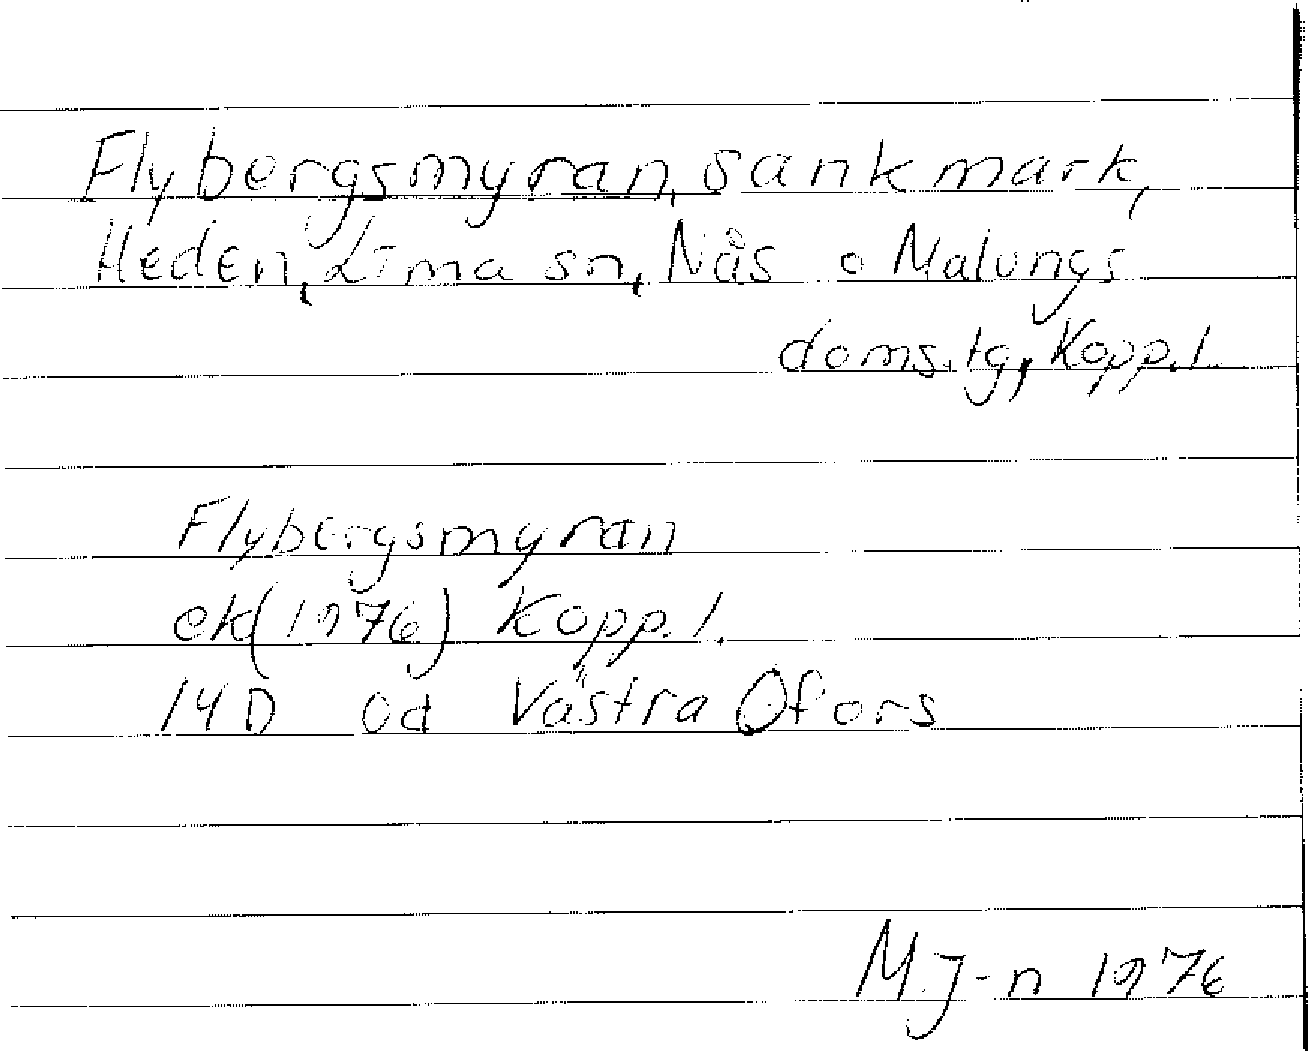 Flybergsmyran, sankmark,
Heden, Lima sn, Nås o Malungs
doms.tg, Kopp.l.
Flybergsmyran
ek(1976) Kopp.l.
14D 0d Västra Ofors
M J-n 1976